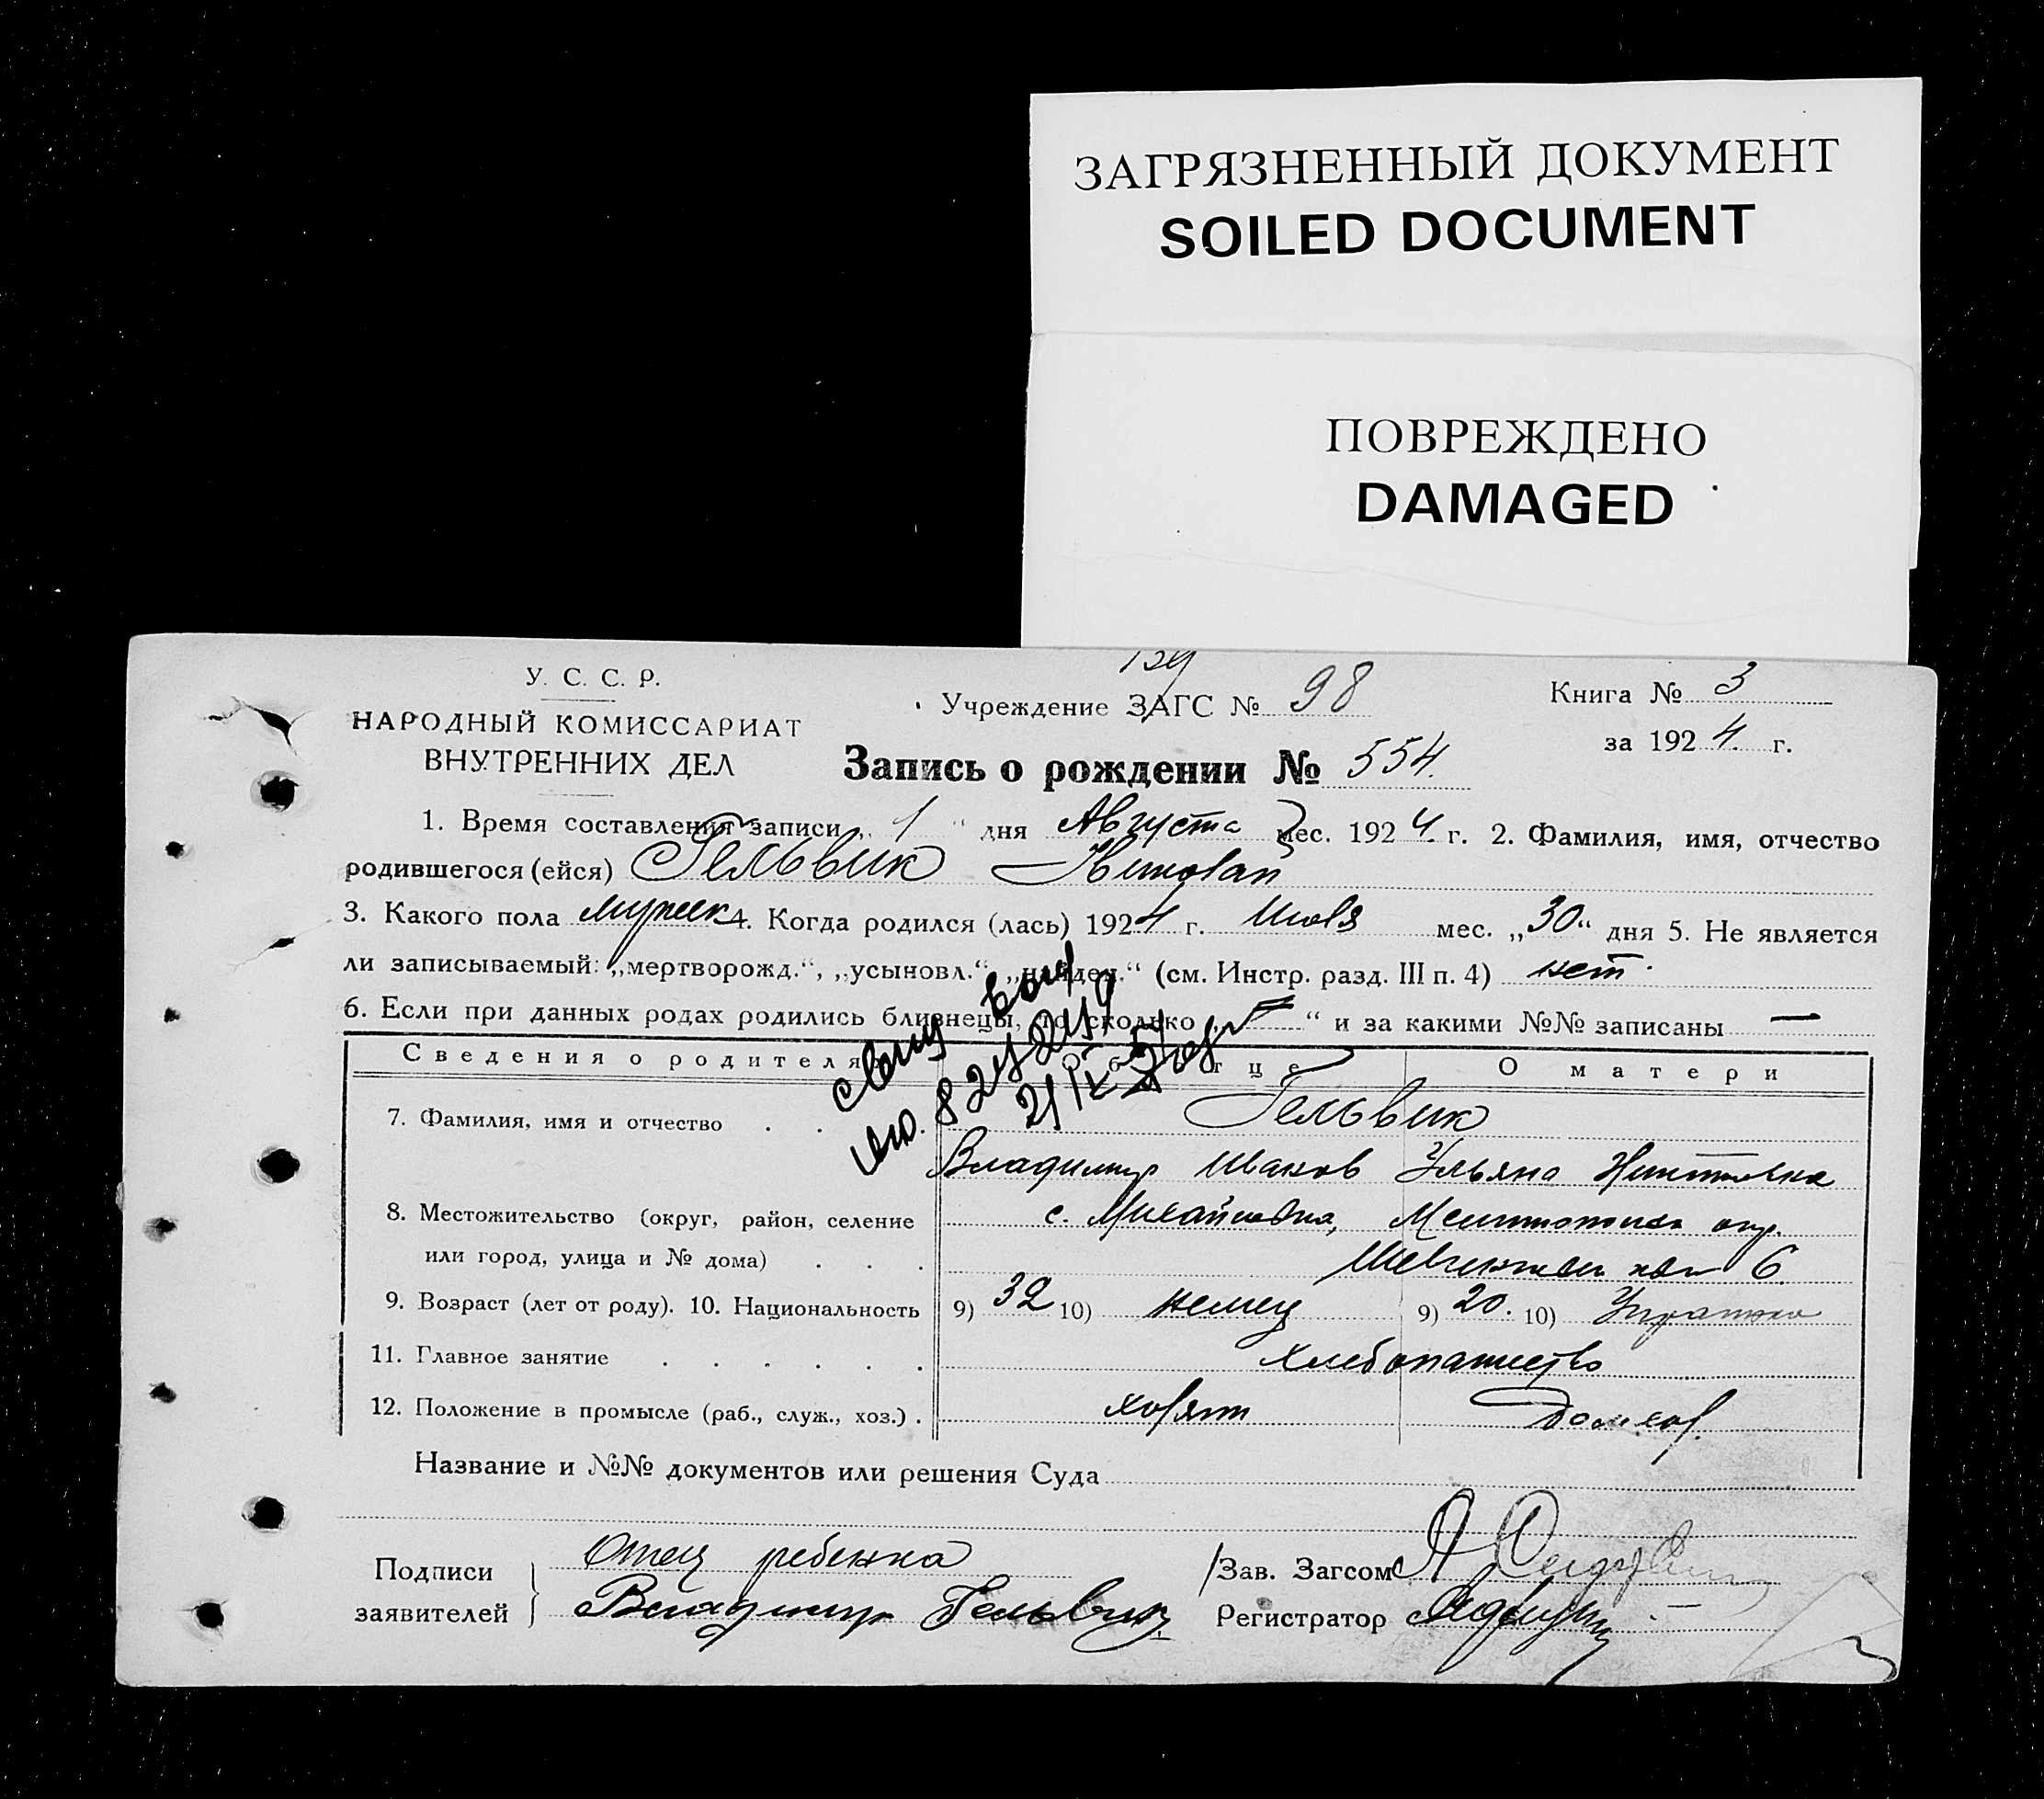 ЗАГРЯЗНЕННЫЙ ДОКУМЕНТ
SOILED DOCUMENT
ПОВРЕЖДЕНО
DAMAGED
У. С. С. Р.
НАРОДНЫЙ КОМИССАРИАТ
ВНУТРЕННИХ ДЕЛ
Учреждение ЗАГС № 98
Книга № 3
за 1924 г.
Запись о рождении № 554.
1. Время составления записи „1“ дня Августа мес. 1924 г. 2. Фамилия, имя, отчество
родившегося (ейся) Гельвик Николай
3. Какого пола мужск 4. Когда родился (лась) 1924 г. Июля мес. „30“ дня 5. Не является
ли записываемый: „мертворожд.“, „усыновл.“ „найден.“ (см. Инстр. разд. III п. 4) нет
6. Если при данных родах родились близнецы, то сколько „—“ и за какими №№ записаны —
Сведения о родителях Об отце О матери
7. Фамилия, имя и отчество . . Гельвик
Владимир Иваков Ульяна
8. Местожительство (округ, район, селение с. Михайловка, окр.
или город, улица и № дома) . . . 6
9. Возраст (лет от роду). 10. Национальность 9) 32 10) немец 9) 20. 10) Украинка
11. Главное занятие . . . . . . хлебопашество
12. Положение в промысле (раб., служ., хоз.) . хозяин домхоз.
Название и №№ документов или решения Суда
Подписи заявителей Отец ребенка
Владимир Гельвиг
Зав. Загсом
Регистратор